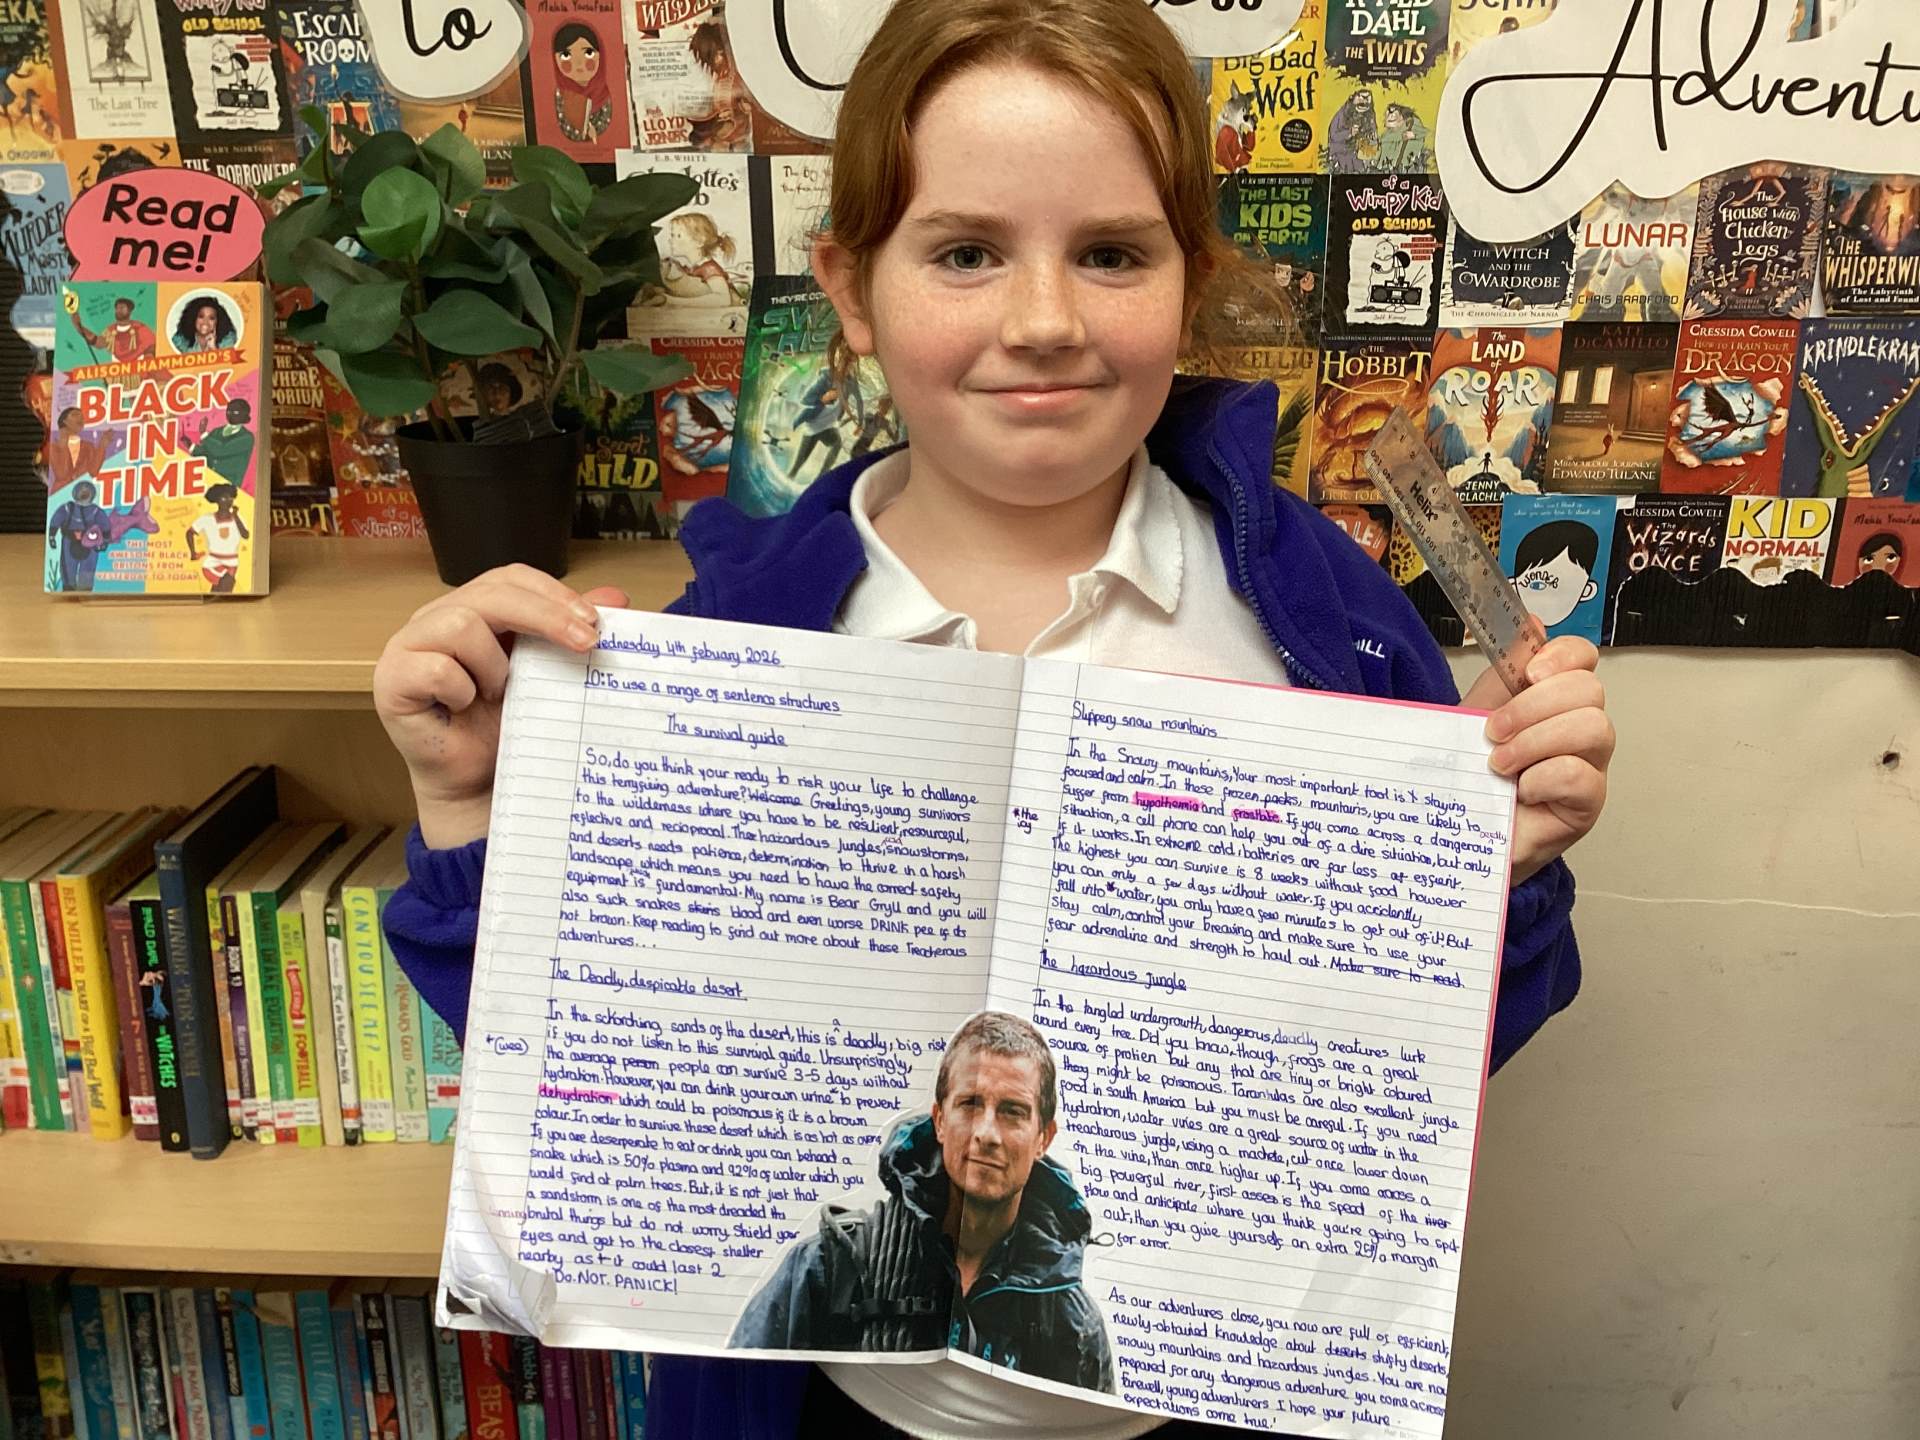 to
Adventu
Read
me!
ALISON HAMMOND'S
BLACK
IN
TIME
THE MOST
AWESOME BLACK
BRITONS FROM
YESTERDAY TO TODAY
The Last Tree
OLD SCHOOL
ESCAPE
ROOM
Malala Yousafzai
LLOYD
JONES
MARY NORTON
THE BORROWERS
E.B. WHITE
Charlotte's
Big Bad
Wolf
DAHL
THE TWITS
THE LAST
KIDS
ON EARTH
of a
Wimpy Kid
OLD SCHOOL
THE WITCH
AND THE
WARDROBE
THE CHRONICLES OF NARNIA
LUNAR
CHRIS BRADFORD
The
HOUSE with
Chicken
Legs
THE
WHISPERWI
The Labyrinth
of Lost and Found
THE
HOBBIT
The
LAND
of
ROAR
JENNY
MCLACHLAN
KATE
DICAMILLO
MIRACULOUS JOURNEY of
EDWARD TULANE
CRESSIDA COWELL
HOW TO TRAIN YOUR
DRAGON
PHILIP RIDLEY
KRINDLEKRAX
WONDER
CRESSIDA COWELL
The
Wizards
of
ONCE
KID
NORMAL
Malala Yousafzai
Helix
HILL
Wednesday 4th febuary 2026
LO: To use a range of sentence structures
The survival guide
So, do you think your ready to risk your life to challenge
this terryfiying adventure? Welcome Greetings, young survivors
to the wilderness where you have to be resilient, resourceful,
reflective and reciprocal. These hazardous jungles, snowstorms,
and deserts needs patience, determination to thrive in a harsh
landscape which means you need to have the correct safety
equipment is fundamental. My name is Bear Gryll and you will
also suck snakes skins blood and even worse DRINK pee if its
not brown. Keep reading to find out more about these treacherous
adventures...
The Deadly, despicable desert
In the schorching sands of the desert, this is a deadly, big risk
if you do not listen to this survival guide. Unsurprisingly,
the average person people can survive 3-5 days without
hydration. However, you can drink your own urine * to prevent
*(wee)
dehydration which could be poisonous if it is a brown
colour. In order to survive these desert which is as hot as ovens
If you are deserperate to eat or drink you can behead a
snake which is 50% plasma and 92% of water which you
would find at palm trees. But, it is not just that
a sandstorm is one of the most dreaded
brutal things but do not worry. Shield your
eyes and get to the closest shelter
nearby as it could last 2
Do. NOT. PANICK!
Slippery snow mountains
In the Snowy mountains, Your most important tool is staying
focused and calm. In these frozen packs, mountains, you are likely to
suffer from hypothemia and frostbite. If you come across a dangerous deadly
*the
icy
situation, a cell phone can help you out of a dire situation, but only
if it works. In extreme cold, batteries are far less effient.
The highest you can survive is 8 weeks without food however
you can only a few days without water. If you accidently
fall into * water, you only have a few minutes to get out of it! But
Stay calm, control your breaving and make sure to use your
fear adrenaline and strength to haul out. Make sure to read.
The hazardous jungle
In the tangled undergrowth, dangerous, deadly creatures lurk
around every tree. Did you know, though, frogs are a great
source of protien but any that are tiny or bright coloured
they might be poisonous. Tarantulas are also excellent jungle
food in South America but you must be careful. If you need
hydration, water vines are a great source of water in the
treacherous jungle, using a machete, cut once lower down
on the vine, then once higher up. If you come across a
big powerful river, first assess is the speed of the river
flow and anticipate where you think you're going to spit
out, then you give yourself an extra 25% margin
for error.
As our adventures close, you now are full of efficient,
newly-obtained knowledge about deserts shifty deserts,
snowy mountains and hazardous jungles. You are now
prepared for any dangerous adventure you come across
farewell, young adventurers I hope your future
expectations come true!
BEN MILLER
DIARY OF A
WITCHES
CAN YOU SEE ME?